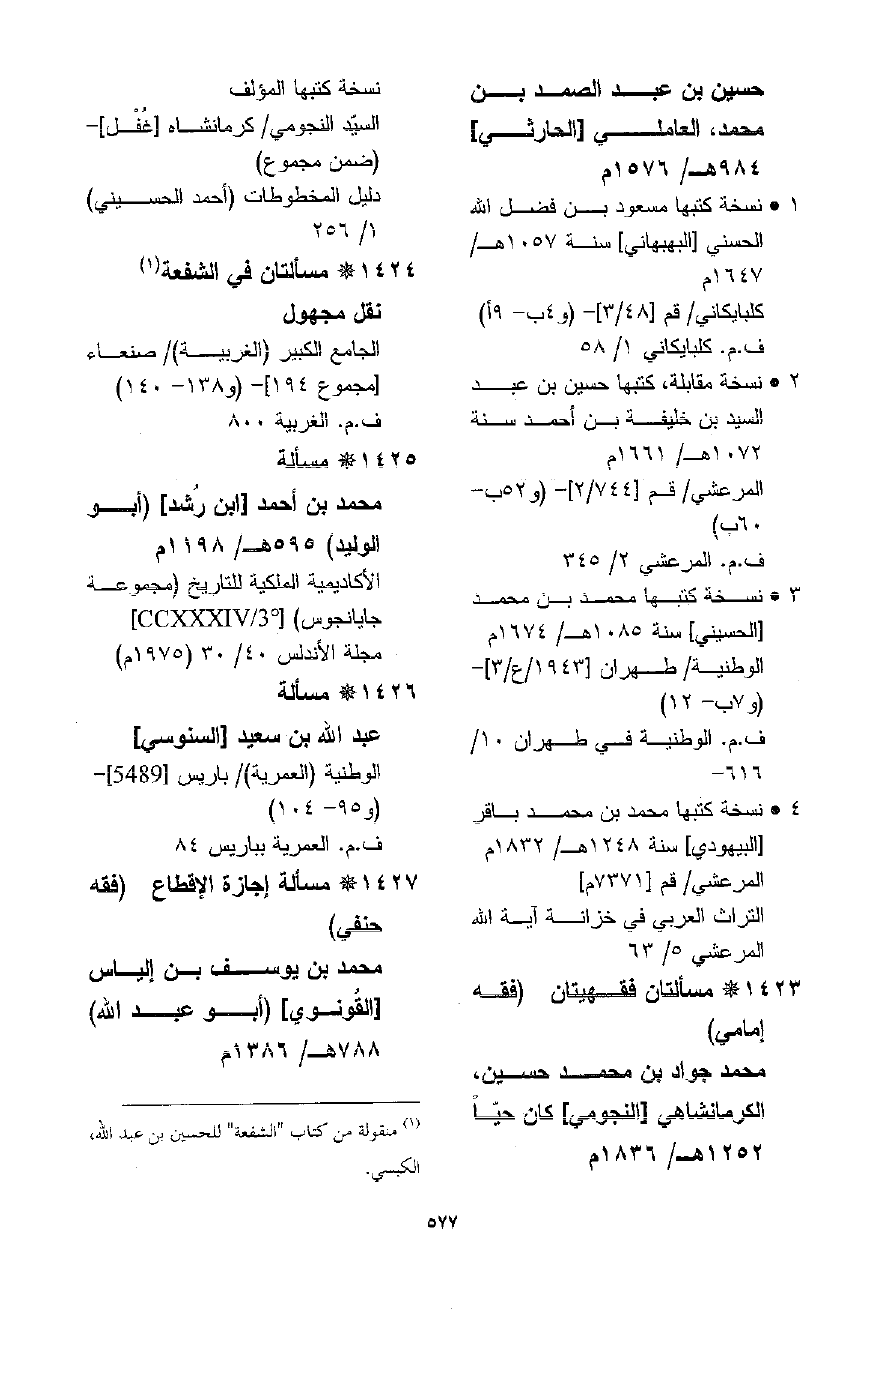 حسين بن عبد الصمد بن
محمد، العاملي [الحارثي]
٩٨٤هـ/ ١٥٧٦م
١ • نسخة كتبها مسعود بن فضل الله
الحسني [البهبهاني] سنة ١٠٥٧هـ/
١٦٤٧م
كلبايكاني/ قم [٣/٤٨]- (و٤ب- ٩أ)
ف.م. كلبايكاني ١/ ٥٨
٢ • نسخة مقابلة، كتبها حسين بن عبد
السيد بن خليفة بن أحمد سنة
١٠٧٢هـ/ ١٦٦١م
المرعشي/ قم [٢/٧٤٤]- (و٥٢ب-
٦٠ب)
ف.م. المرعشي ٢/ ٣٤٥
٣ • نسخة كتبها محمد بن محمد
[الحسيني] سنة ١٠٨٥هـ/ ١٦٧٤م
الوطنية/ طهران [١٩٤٣/ع/٣]-
(و٧ب- ١٢)
ف.م. الوطنية في طهران ١٠/
٦١٦-
٤ • نسخة كتبها محمد بن محمد باقر
[البيهودي] سنة ١٢٤٨هـ/ ١٨٣٢م
المرعشي/ قم [٧٣٧١م]
التراث العربي في خزانة آية الله
المرعشي ٥/ ٦٣
١٤٢٣ * مسألتان فقهيتان (فقه
إمامي)
محمد جواد بن محمد حسين،
الكرمانشاهي [النجومي] كان حيّاً
١٢٥٢هـ/ ١٨٣٦م
نسخة كتبها المؤلف
السيّد النجومي/ كرمانشاه [غُفْل]-
(ضمن مجموع)
دليل المخطوطات (أحمد الحسيني)
١/ ٢٥٦
١٤٢٤ * مسألتان في الشفعة(١)
نقل مجهول
الجامع الكبير (الغربية)/ صنعاء
[مجموع ١٩٤]- (و١٣٨- ١٤٠)
ف.م. الغربية ٨٠٠
١٤٢٥ * مسألة
محمد بن أحمد [ابن رُشد] (أبو
الوليد) ٥٩٥هـ/ ١١٩٨م
الأكاديمية الملكية للتاريخ (مجموعة
جايانجوس) [CCXXXIV/3°]
مجلة الأندلس ٤٠/ ٣٠ (١٩٧٥م)
١٤٢٦ * مسألة
عبد الله بن سعيد [السنوسي]
الوطنية (العمرية)/ باريس [5489]-
(و٩٥- ١٠٤)
ف.م. العمرية بباريس ٨٤
١٤٢٧ * مسألة إجازة الإقطاع (فقه
حنفي)
محمد بن يوسف بن إلياس
[القُونوي] (أبو عبد الله)
٧٨٨هـ/ ١٣٨٦م
(١) منقولة من كتاب "الشفعة" للحسين بن عبد الله،
الكبسي.
٥٧٧